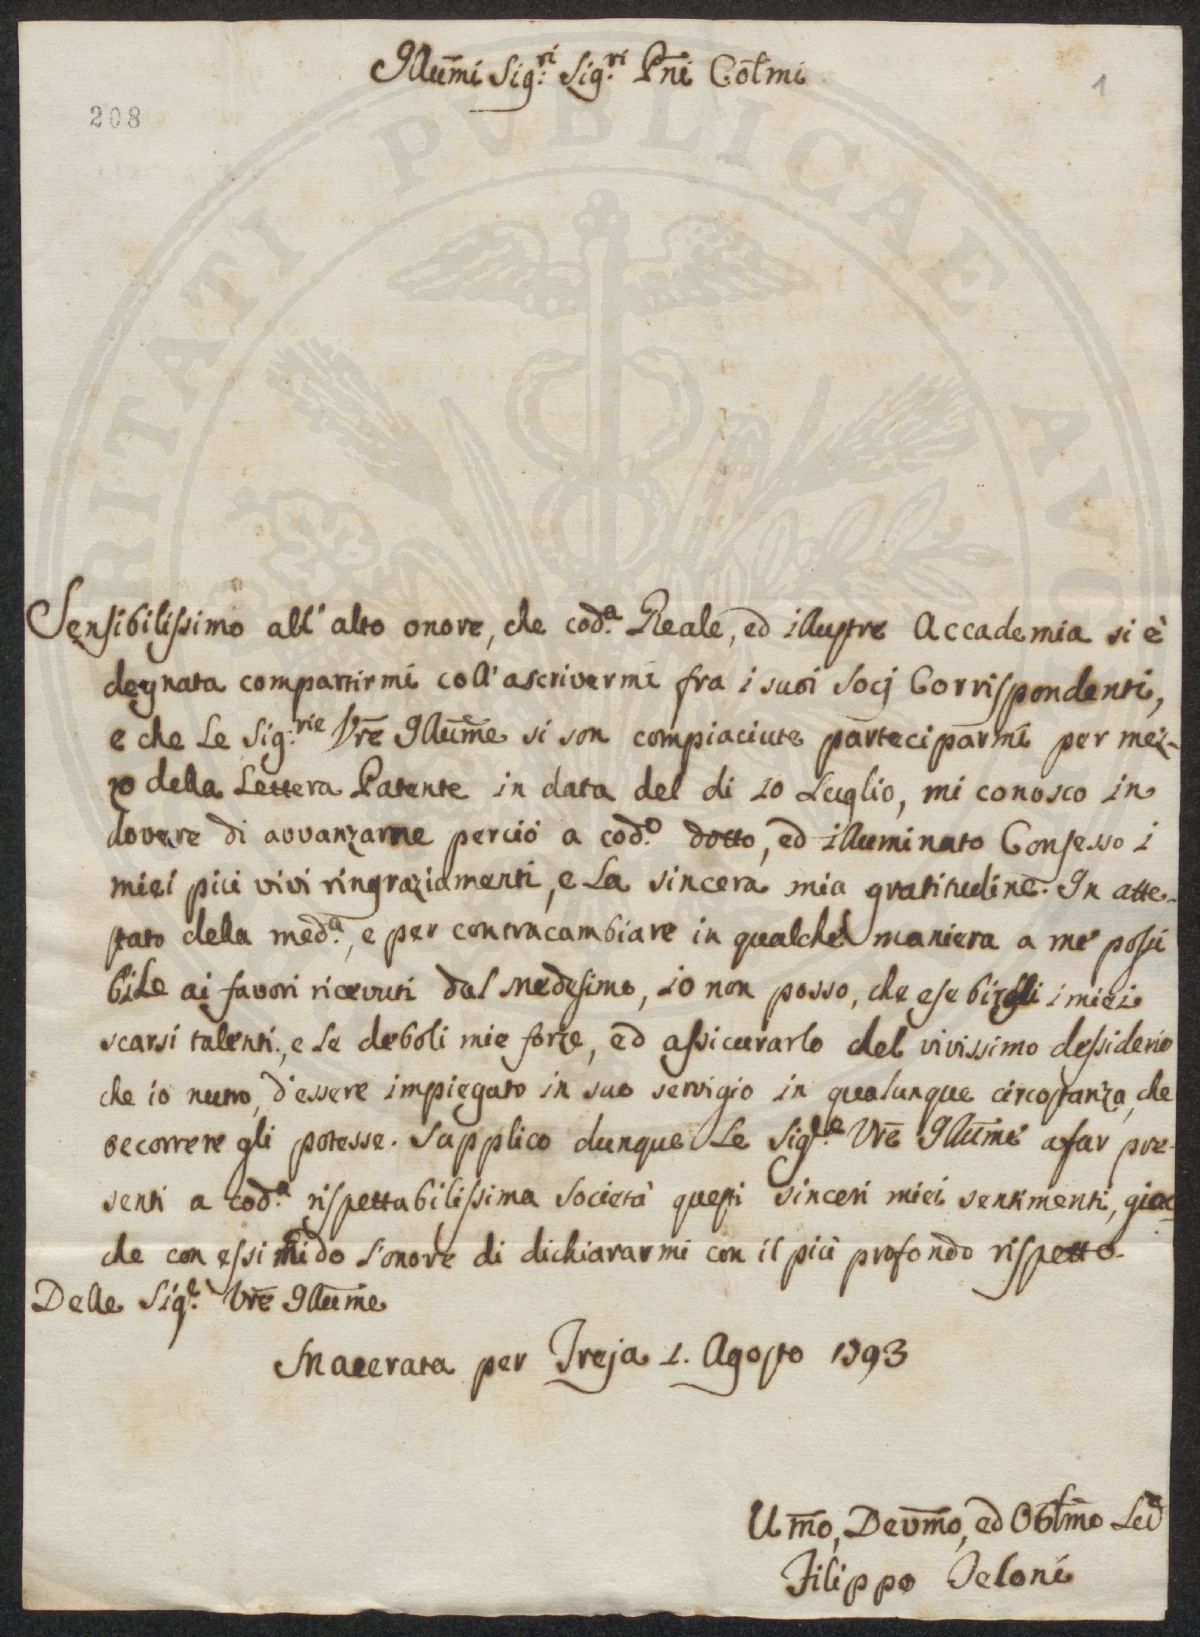 Illum̅i Sig:ri Sig:ri Pn̅i Col̅mi
208
1
RITATI PVBLICAE AVG
Sensibilissimo all' alto onore, che cod:a Reale, ed illustre Accademia si è
degnata compartirmi coll' ascrivermi fra i suoi Socj Corrispondenti,
e che Le Sig:rie Vr̅e Illum̅e si son compiaciute parteciparmi per mez-
zo della Lettera Patente in data del di 10 Luglio, mi conosco in
dovere di avvanzarne perciò a cod:o dotto, ed illuminato Consesso i
miei più vivi ringraziamenti, e La sincera mia gratitudine. In atte-
stato della med:a, e per contracambiare in qualche maniera a me possi
biLe ai favori ricevuti dal Medesimo, io non posso, che esebirgli i miei
scarsi talenti, e Le deboli mie forze, ed assicurarlo del vivissimo dessiderio
che io nutro, d'essere impiegato in suo servigio in qualunque circostanza, che
occorrere gli potesse. Supplico dunque Le Sig:e Vr̅e Illum̅e a far pre-
senti a cod:a rispettabilissima Società questi sinceri miei sentimenti, giac-
che con essi mi do l'onore di dichiararmi con il più profondo rispetto.
Delle Sig:e Vr̅e Illum̅e
Macerata per Treja 1. Agosto 1793
Um̅o, Devm̅o, ed Obl̅mo
Filippo Teloni